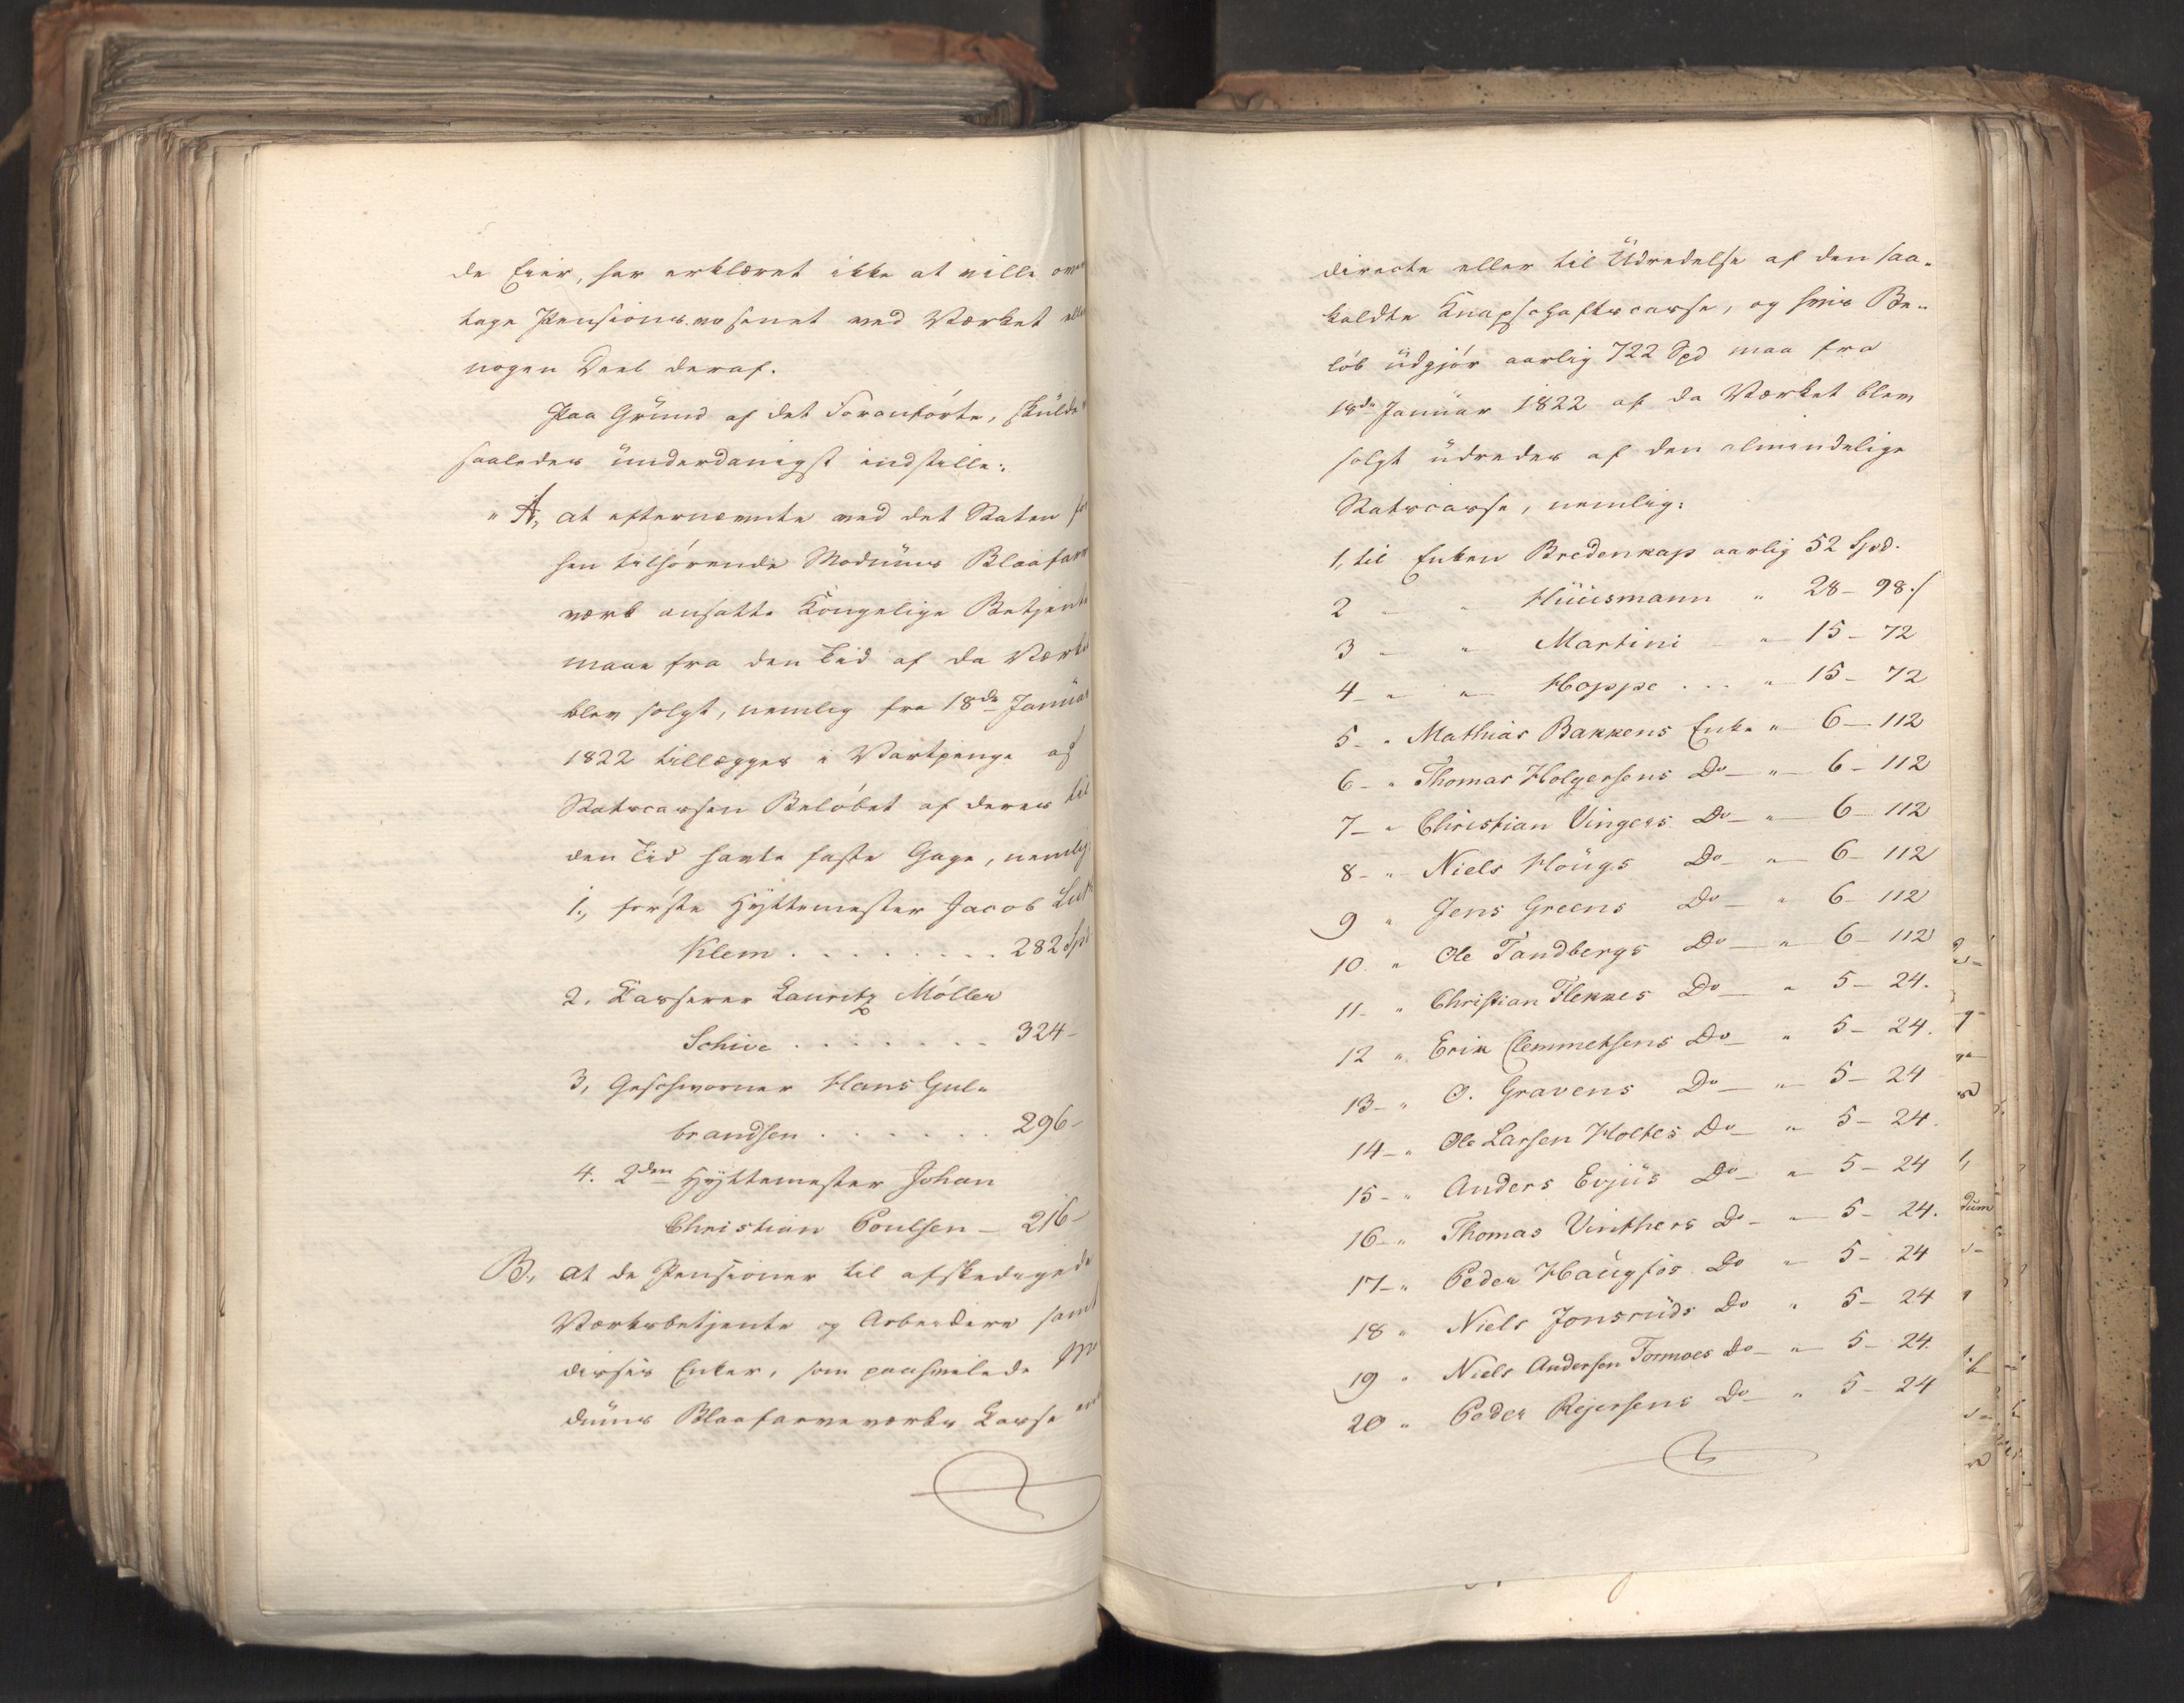 de Eier, har erklæret ikke at ville over
tage Pensionsvæsenet ved Værket eller
nogen Deel deraf.
Paa Grund af det Foranførte, skulde
saaledes underdanigst indstille:
" A, at efternævnte ved det Staten for
hen tilhørende Modums Blaafarve
værk ansatte Kongelige Betjente
maae fra den Tid af da Værket
blev solgt, nemlig fra 18de Januar
1822 tillægges i Vartpenge af
Statscassen Beløbet af deres til
den Tid havte faste Gage, nemlig:
1., første Hyttemester Jacob
Klem . . . . . . . . 282 Spd
2, Kasserer Lauritz Møller
Schive . . . . . . . 324 –
3, Geschworner Hans Gul-
brandsen . . . . . . 296 –
4. 2den Hyttemester Johan
Christian Poulsen – 216 –
B., at de Pensioner til afskedigede
Værksbetjente og Arbeidere samt
disses Enker, som paahvilede Mo
dums Blaafarveværks Kasse enten
directe eller til Udredelse af den saa-
kaldte Knapschaftscasse, og hvis Be-
løb udgjør aarlig 722 Spd maa fra
18de Januar 1822 af da Værket blev
solgt udredes af den almindelige
Statscasse, nemlig:
1, til Enken Bredenkap aarlig 52 Spd.
2 – " Huusmann " 28 – 98 ß
3 – " Martini – " 15 – 72
4 – " – " Hoppe . . . " 15 – 72
5 – " Mathias Bakkens Enke " 6 – 112
6 – " Thomas Holgersens Do – " – 6 – 112
7 – " Christian Vingers Do – " – 6 – 112
8 – " Niels Hougs Do – " – 6 – 112
9 " Jens Greens Do – " 6 – 112
10 " Ole Tandbergs Do – " – 6 – 112
11 – " Christian Flekkes Do – " 5 – 24.
12 " Erik Clemmetsens Do – " 5 – 24.
13 – " O. Gravens Do – " – 5 – 24
14 – " Ole Larsen Holtes Do – " 5 – 24.
15 – " Anders Evjus Do – " – 5 – 24
16 – " Thomas Vinthers Do – " – 5 – 24.
17 – " Peder Haugfos Do " 5 – 24
18 " Niels Jonsruds Do " 5 – 24
19 " Niels Andersen Tormoes Do – " – 5 – 24.
20 " Peder Rejersens Do – " 5 – 24